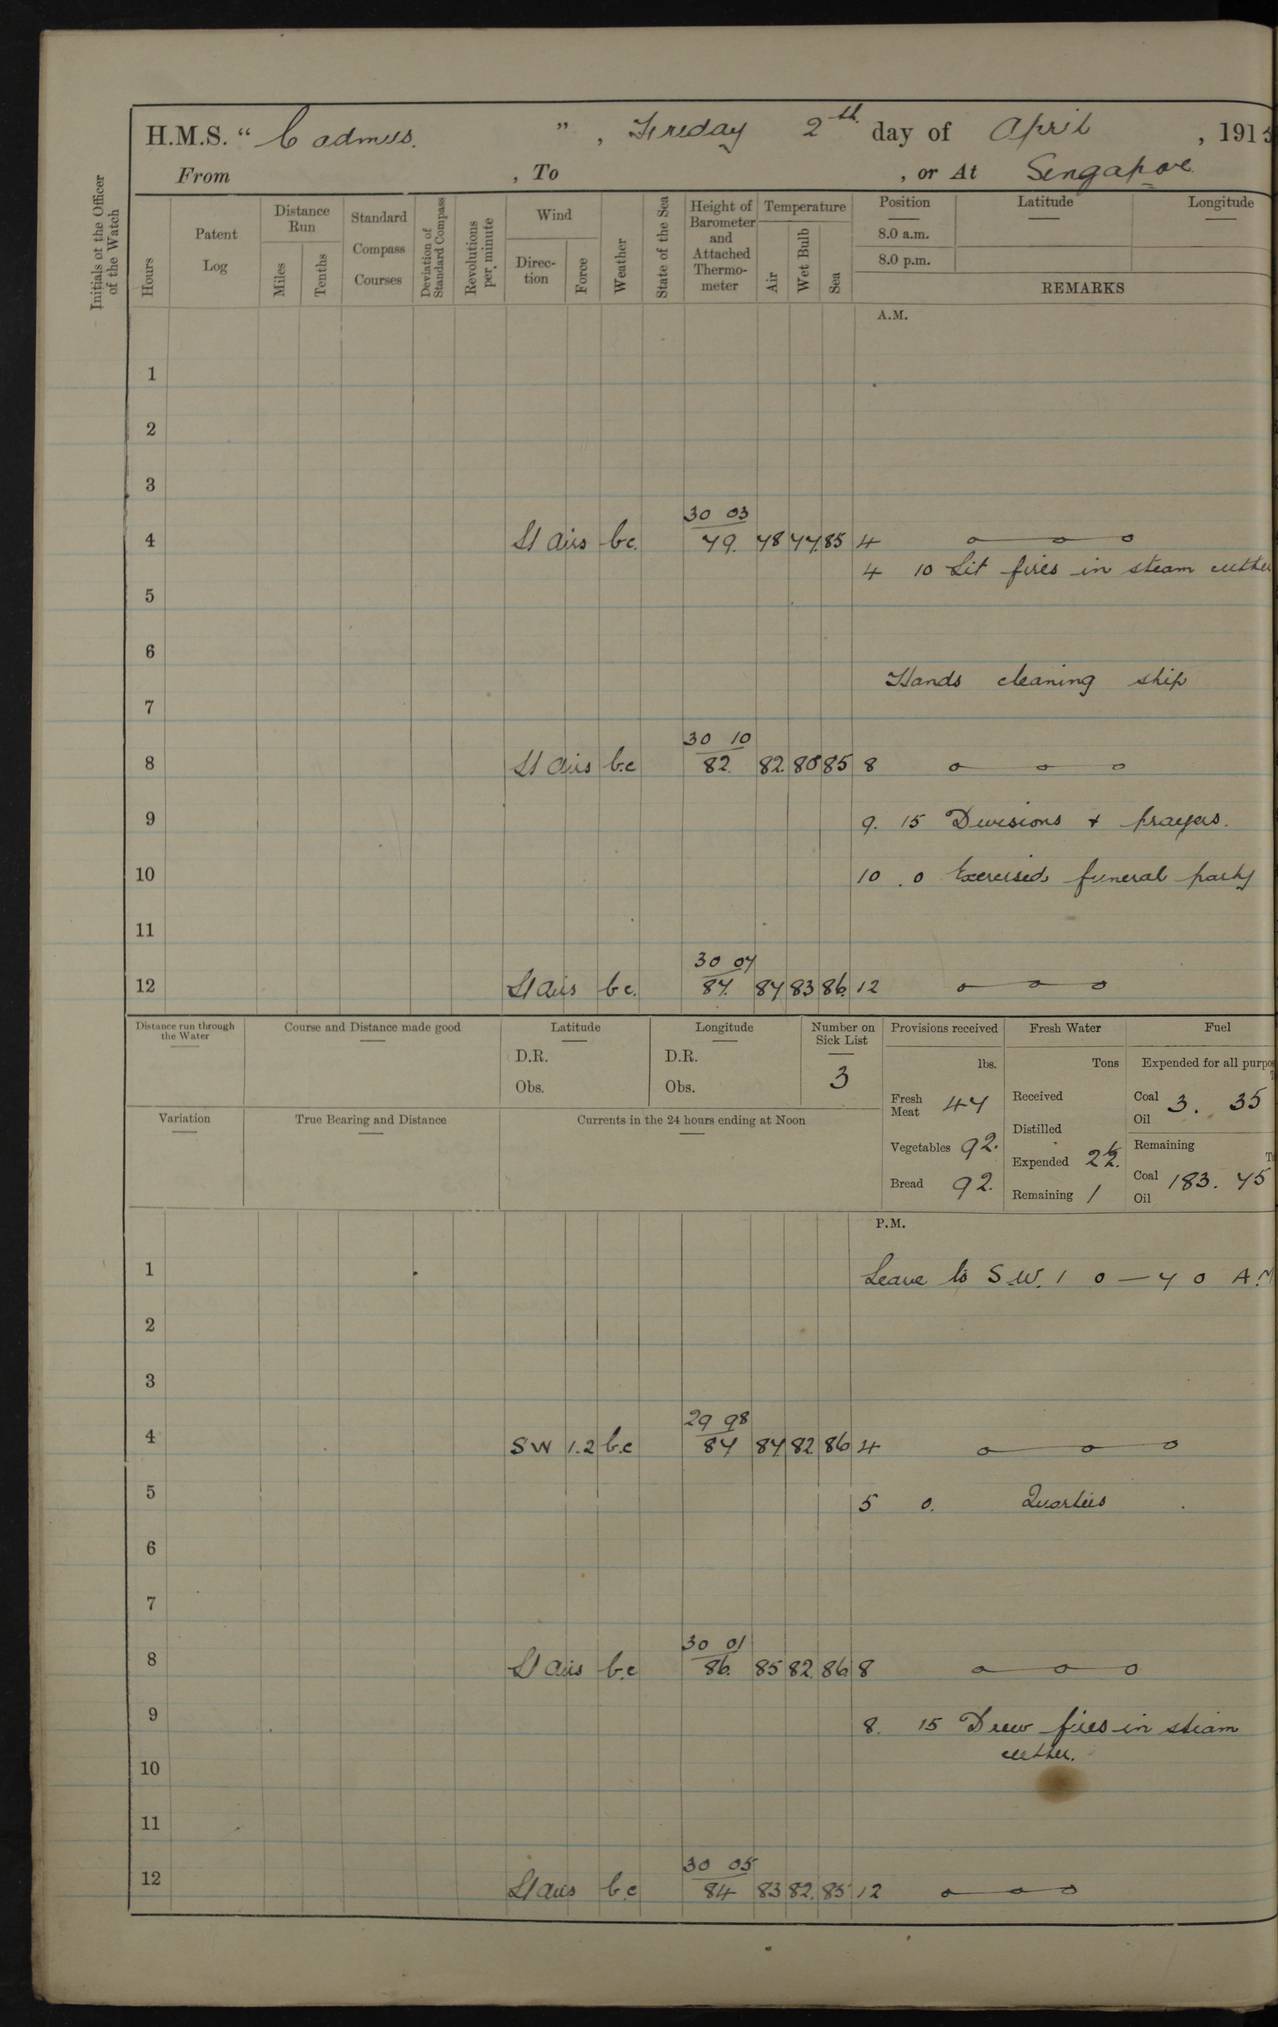 H.M.S. “ Cadmus. ” , Friday 2th day of April , 191
From , To , or At Singapore
Initials of the Officer of the Watch
Hours
Patent Log
Distance Run
Miles
Tenths
Standard Compass Courses
Deviation of Standard Compass
Revolutions per minute
Wind
Direction
Force
Weather
State of the Sea
Height of Barometer and Attached Thermometer
Temperature
Air
Wet Bulb
Sea
Position
8.0 a.m.
8.0 p.m.
Latitude
Longitude
REMARKS
A.M.
1
2
3
30 03
4 Lt airs b.c. 79. 78 77. 85 4
4 10 Lit fires in steam cutter
5
6
Hands cleaning ship
7
30 10
8 Lt airs b.c 82. 82. 80 85 8
9 9. 15 Divisions + prayers.
10 10 . 0 Exercised funeral party
11
30 07
12 Lt airs b.c. 87. 87 83 86. 12
Distance run through the Water
Course and Distance made good
Latitude
D.R.
Obs.
Longitude
D.R.
Obs.
Number on Sick List
3
Provisions received
lbs.
Fresh Meat 47
Vegetables 92.
Bread 92.
Fresh Water
Tons
Received
Distilled
Expended
Remaining 1
Fuel
Expended for all purpo
Coal 3. 35
Oil
Remaining
Coal 183. 75
Oil
Variation
True Bearing and Distance
Currents in the 24 hours ending at Noon
P.M.
1 Leave to S.W. 1 0 — 7 0 A.M
2
3
29 98
4 SW 1.2 b.c 87 87 82 86 4
5 5 0. Quarters
6
7
30 01
8 Lt airs b.c 86. 85 82. 86 8
9 8. 15 Drew fires in steam
cutter.
10
11
30 05
12 Lt airs b.c 84 83 82. 85 12